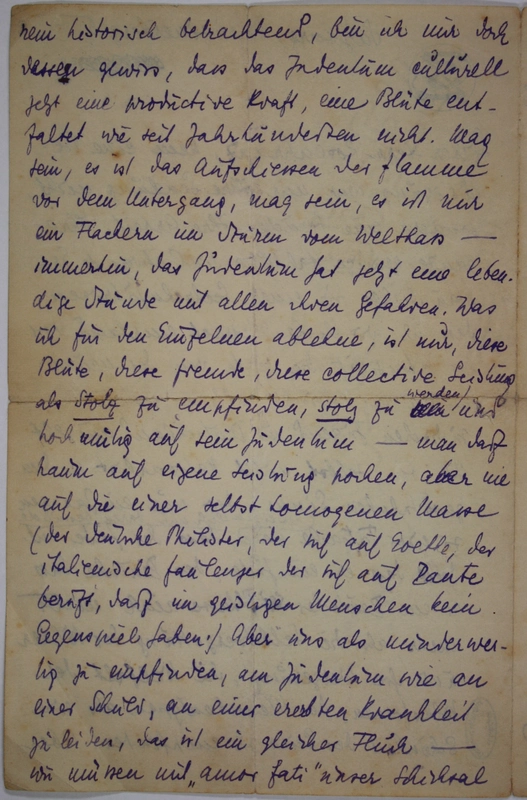 rein historisch betrachtend, bin ich mir doch
dessen gewiss, dass das Judentum culturell
jetzt eine productive Kraft, eine Blüte ent-
faltet wie seit Jahrhunderten nicht. Mag
sein, es ist das Aufschiessen der Flamme
vor dem Untergang, mag sein, es ist nur
ein Flackern im Sturm vom Welthass —
immerhin, das Judentum hat jetzt eine leben-
dige Stunde mit allen ihren Gefahren. Was
ich für den Einzelnen ablehne, ist nur, diese
Blüte, diese fremde, diese collective Leistung
als Stolz zu empfinden, stolz zu werden und
hochmütig auf sein Judentum — man darf
kaum auf eigene Leistung pochen, aber nie
auf die einer selbst homogenen Masse
(der deutsche Philister, der sich auf Goethe, der
italienische Faulenzer der sich auf Dante
beruft, darf im geistigen Menschen kein
Gegenspiel haben.) Aber uns als minderwer-
tig zu empfinden, am Judentum wie an
einer Schuld, an einer ererbten Krankheit
zu leiden, das ist ein gleicher Fluch —
wir müssen mit „amor fati" unser Schicksal